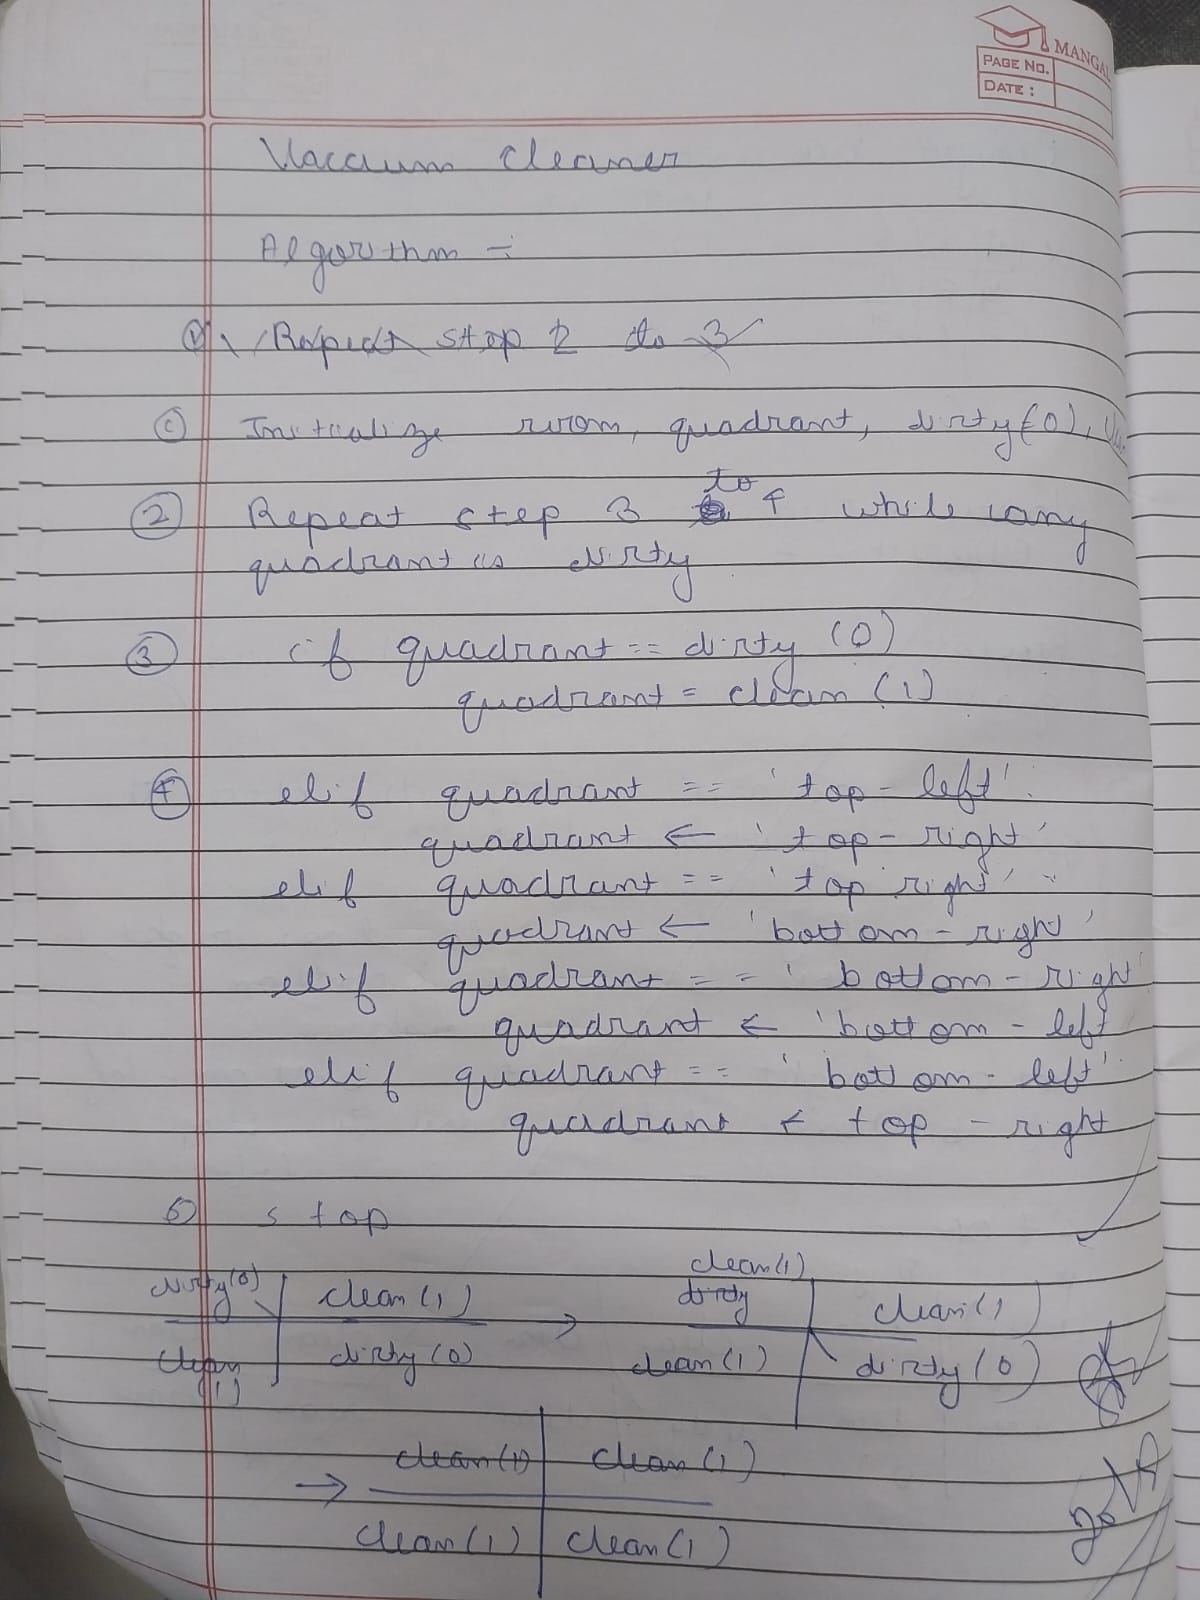 MANGAL
PAGE NO.
DATE :
Vaccum cleaner
Algorithm =
Repeat step 2 to 3
① Initialize room, quadrant, dirty(0),
② Repeat step 3 to 4 while any
quadrant is dirty
③ if quadrant == dirty (0)
quadrant = clean (1)
④ elif quadrant == 'top-left'.
quadrant ← 'top-right'
elif quadrant == 'top right'
quadrant ← 'bottom-right'
elif quadrant == 'bottom-right'
quadrant ← 'bottom-left
elif quadrant == 'bottom-left'.
quadrant ← top-right
5) stop
clean(1)
dirty(0) clean(1) → dirty clean(1)
clean(1) dirty(0) clean(1) dirty(0)
→ clean(1) clean(1)
clean(1) clean(1)